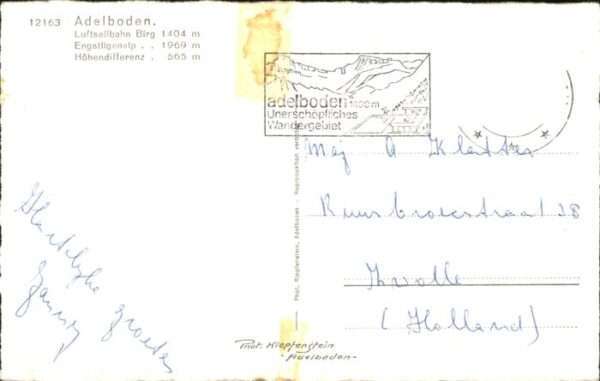 12163 Adelboden.
Luftseilbahn Birg 1404 m
Engstligenalp . . 1969 m
Höhendifferenz . 565 m
adelboden 1400 m
Unerschöpfliches
Wandergebiet
Mej A Kletter
Ruusbroecstraat 28
Zwolle
(Holland)
Hartelijke groeten
Phot. Klopfenstein, Adelboden - Reproduktion verboten
Phot. Klopfenstein
Adelboden